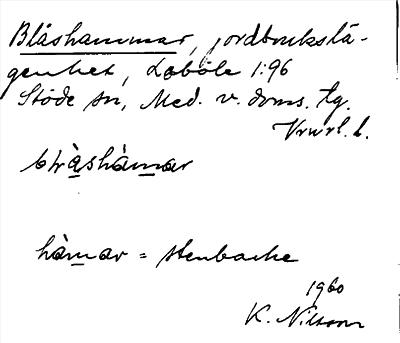 Blåshammar, jordbrukslä-
genhet, Loböle 1:96
Stöde sn, Med. v. doms. tg.
Vnrl. l.
blàshàmar
hàmar = stenbacke
1960
K. Nilsson